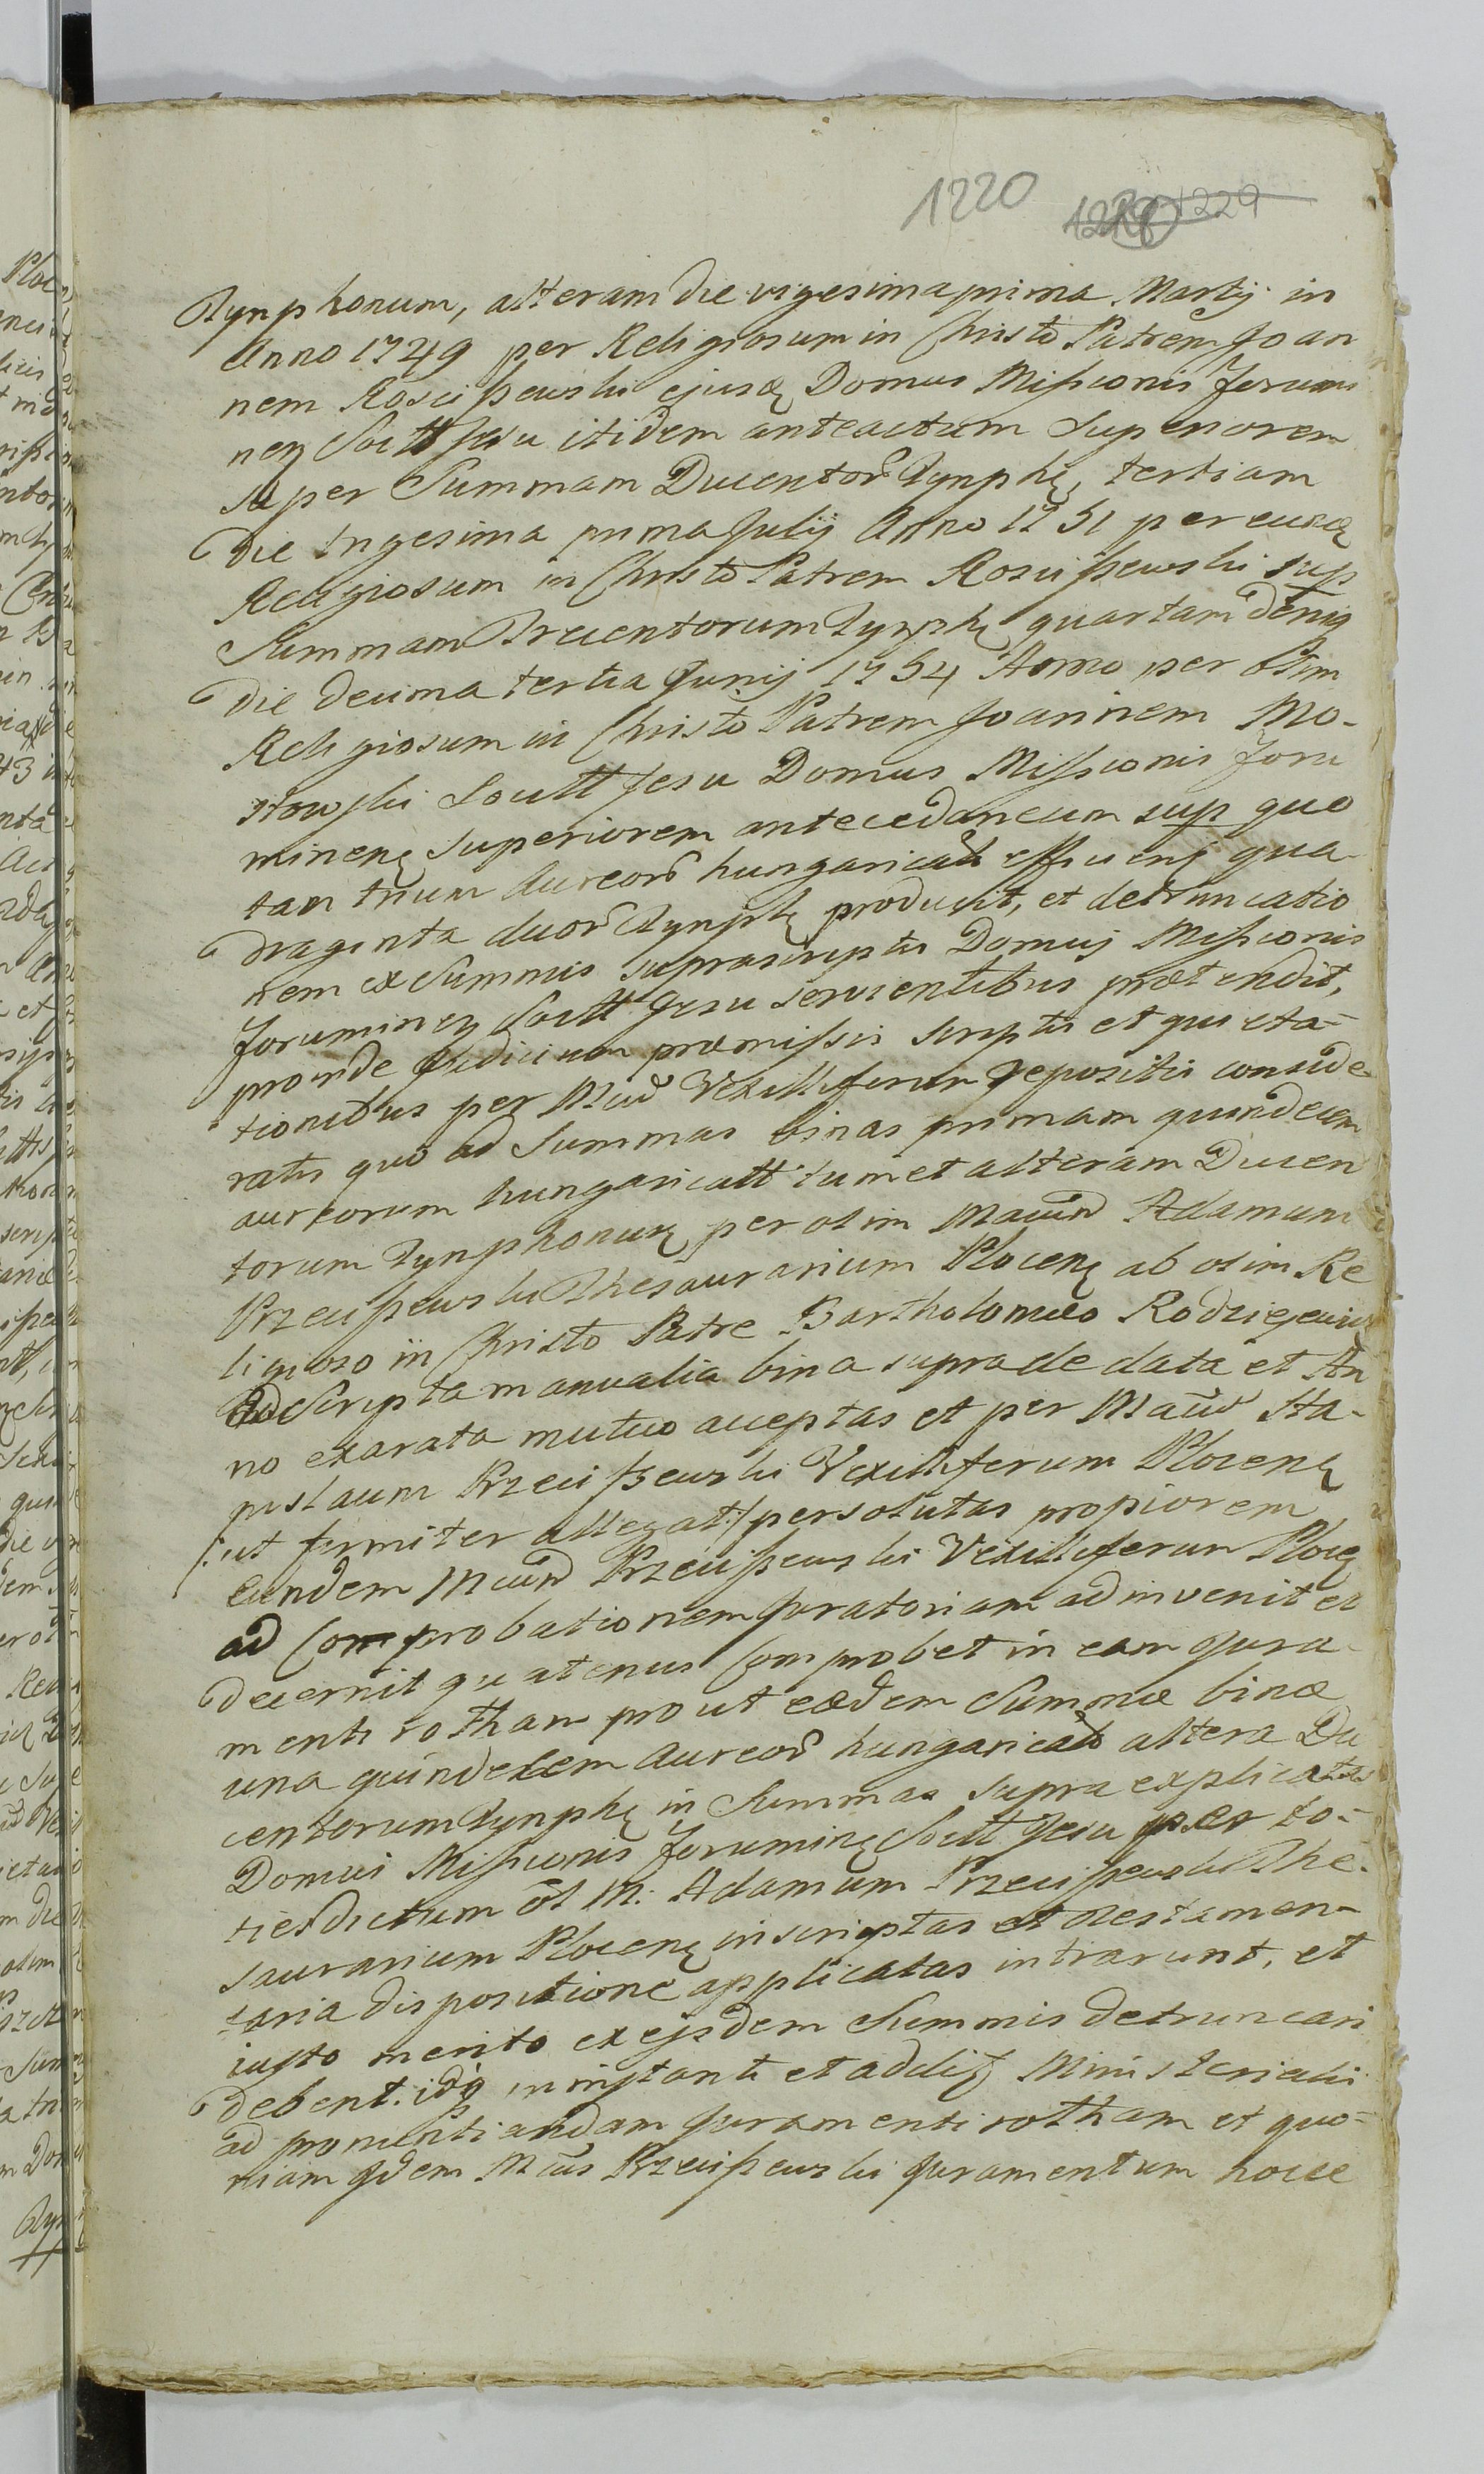 1220 1229
Tynphonum, alteram die vigesima prima Martij in
Anno 1749 per Religiosum in Christo Patrem Joan
nem Rosciszewski ejusq Domus Missionis Forum
neñ Soctt Jesu itidem anteactum Superiorem
super Summam Ducentor Tynphę, tertiam
die trigesima prima Julij Anno 1751 per eundę
Religiosum in Christo Patrem Rosciszewski sup
Summam Trecentorum Tynphę quartam deniq
die decima tertia Junij 1754 Anno per olim
Religiosum in Christo Patrem Joannem Mo-
stowski Soctt Jesu Domus Missionis Foru
minenę Superiorem antecedaneum sup quo
tam trium Aureor hungaricatt efficienę qua
draginta duor Tynphę producit, et detruncatio
nem ex Summis suprascriptis Domuj Missionis
Forumineñ Soctt Jesu servientibus prætendit,
proinde Judicium præmissis scriptis et quieta-
tionibus per Mcum Vexilliferum repositis conside-
ratis quo ad Summas binas primam quindecem
aureorum hungaricatt tum et alteram Ducen
torum Tynphonum per olim Macum Adamum
Przeciszewski Thesaurarium Plocenę ab olim Re
ligioso in Christo Patre Bartholomæo
ad Scripta manualia bina supra de data et An
no exarata mutuo acceptas et per Macum Sta-
nislaum Przeciszewski Vexilliferum Plocenę
/:ut firmiter allegat:/ persolutas propiorem
eundem Mcum Przeciszewski Vexilliferum Plocę
ad Comprobationem Juratoriam adinvenit et
decernit quatenus Comprobet in eam Jura-
menti rotham prout eædem Summæ binæ
una quindecem Aureor hungaricatt altera Du
centorum Tynphę in Summas supra explicatas
Domui Missionis Foruminę Soctt Jesu per to-
tiesdictum ol M: Adamum Przeciszewski The-
saurarium Plocenę inscriptas et Testamen-
taria dispositione applicatas intrarunt, et
iusto merito ex ejsdem Summis detruncari
debent. idq in instanti et addit Ministeriali
ad pronuntiandam Juramenti rotham et quo-
niam Idem Mcus Przeciszewski Juramentum hocce